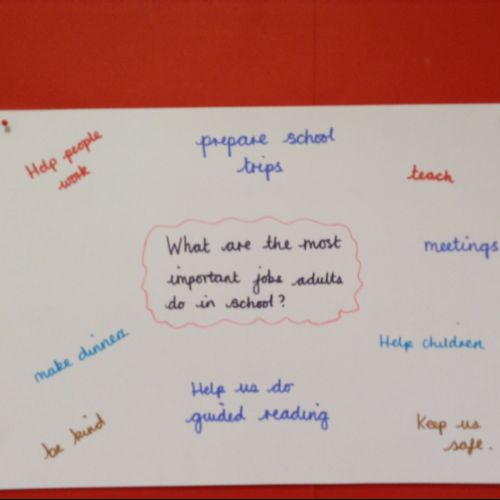 Help people
work
prepare school
trips
teach
meetings
What are the most
important jobs adults
do in school?
make dinner
Help children
Help us do
guided reading
be kind
Keep us
safe.